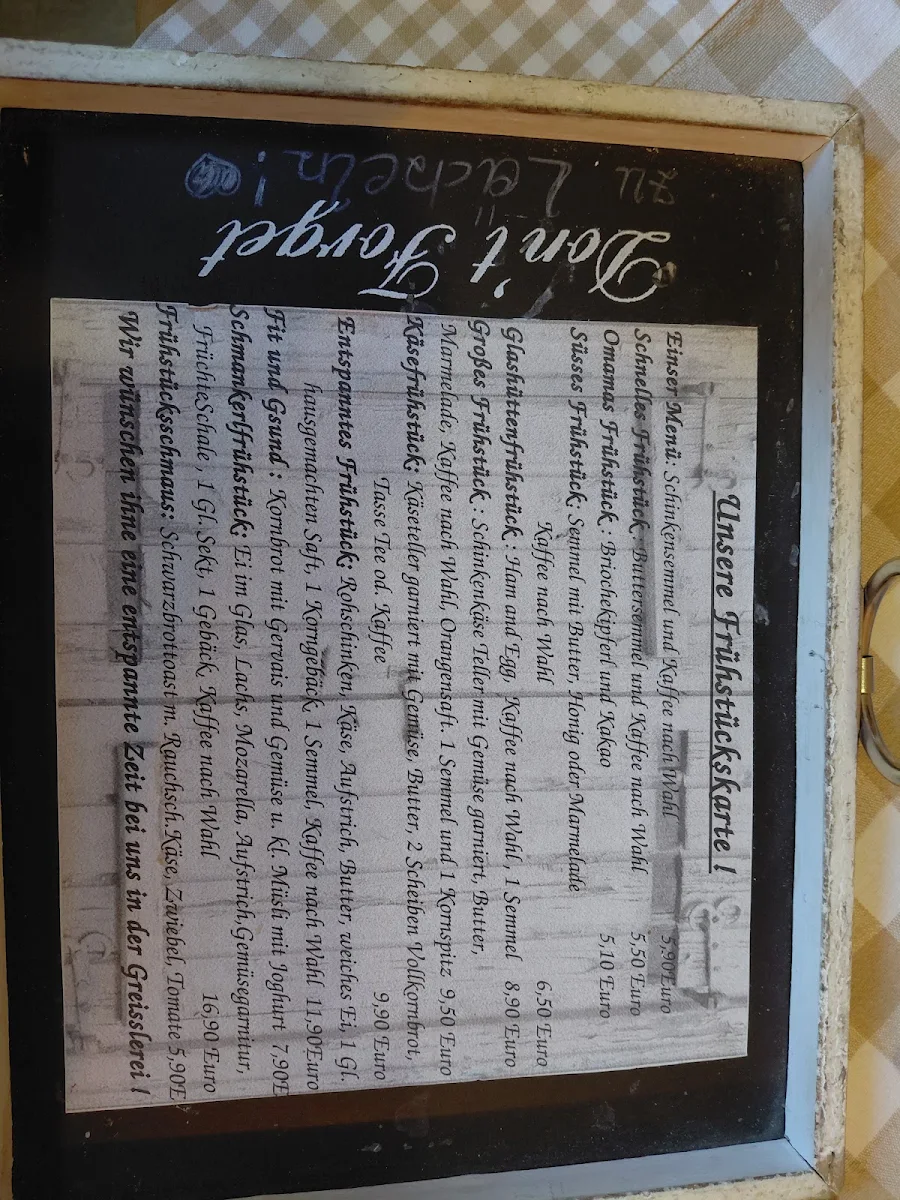 Don't Forget
zu Lächeln!
Unsere Frühstückskarte !
Einser Menü: Schinkensemmel und Kaffee nach Wahl 5,90Euro
Schnelles Frühstück : Buttersemmel und Kaffee nach Wahl 5,50 Euro
Omamas Frühstück : Briochekipferl und Kakao 5,10 Euro
Süsses Frühstück; Semmel mit Butter, Honig oder Marmelade
Kaffee nach Wahl 6,50 Euro
Glashüttenfrühstück : Ham and Egg, Kaffee nach Wahl , 1 Semmel 8,90 Euro
Großes Frühstück : Schinkenkäse Teller mit Gemüse garniert, Butter,
Marmelade, Kaffee nach Wahl, Orangensaft. 1 Semmel und 1 Kornspitz 9,50 Euro
Käsefrühstück; Käseteller garniert mit Gemüse, Butter, 2 Scheiben Vollkornbrot,
Tasse Tee od. Kaffee 9,90 Euro
Entspanntes Frühstück; Rohschinken, Käse, Aufstrich, Butter, weiches Ei, 1 Gl.
hausgemachten Saft, 1 Korngebäck, 1 Semmel, Kaffee nach Wahl 11,90Euro
Fit und Gsund : Kornbrot mit Gervais und Gemüse u. kl. Müsli mit Joghurt 7,90E
Schmankerlfrühstück; Ei im Glas, Lachs, Mozarella, Aufstrich,Gemüsegarnitur,
FrüchteSchale , 1 Gl. Sekt, 1 Gebäck, Kaffee nach Wahl 16,90 Euro
Frühstücksschmaus; Schwarzbrottoast m. Rauchsch.Käse, Zwiebel, Tomate 5,90E
Wir wünschen ihne eine entspannte Zeit bei uns in der Greisslerei !